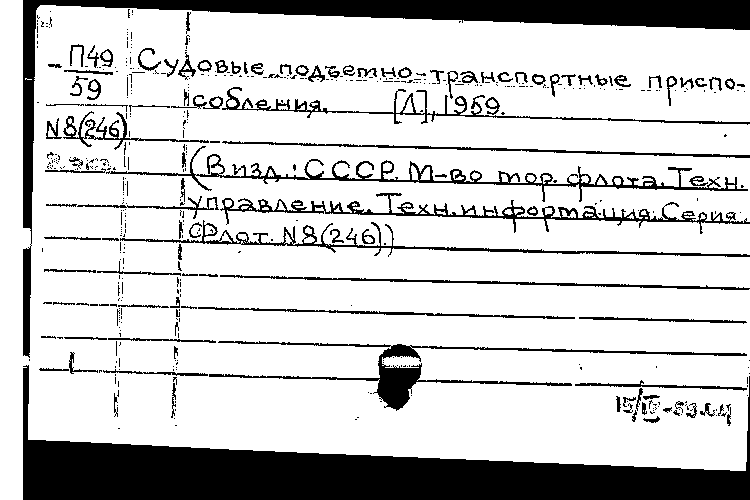 П49 Судовые подъемно-транспортные приспо-
59 собления. [Л.], 1959.
N8(246)
2 экз.
(В изд.: СССР. М-во мор. флота. Техн.
управление. Техн. информация. Серия:
Флот. N8(246).)
15/IV-59